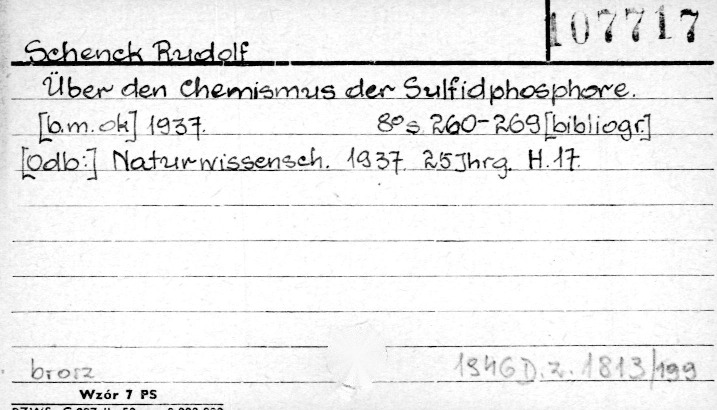 107717
Schenck Rudolf
Über den Chemismus der Sulfidphosphore.
[b.m.ok] 1937. 8° s. 260-269 [bibliogr.]
[Odb:] Naturwissensch. 1937. 25 Jhrg. H. 17.
brosz 1946 D. z. 1813/199
Wzór 7 PS